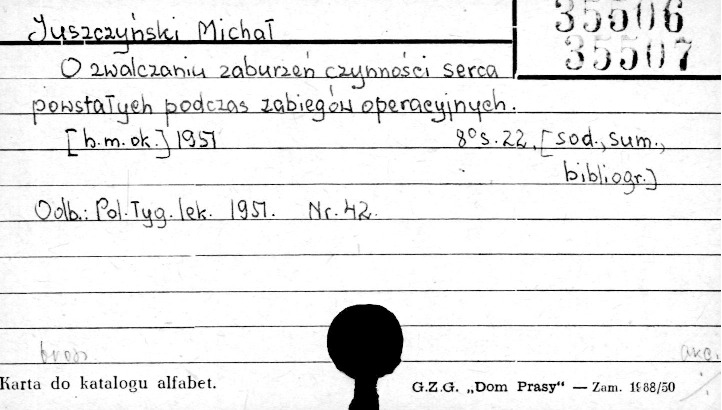 Juszczyński Michał
35506
35507
O zwalczaniu zaburzeń czynności serca
powstałych podczas zabiegów operacyjnych.
[b.m.ok.] 1951 8° s. 22, [sod., sum.,
bibliogr.]
Odb.: Pol. Tyg. lek. 1951. Nr. 42.
Karta do katalogu alfabet.
G.Z.G. „Dom Prasy“ — Zam. 1988/50